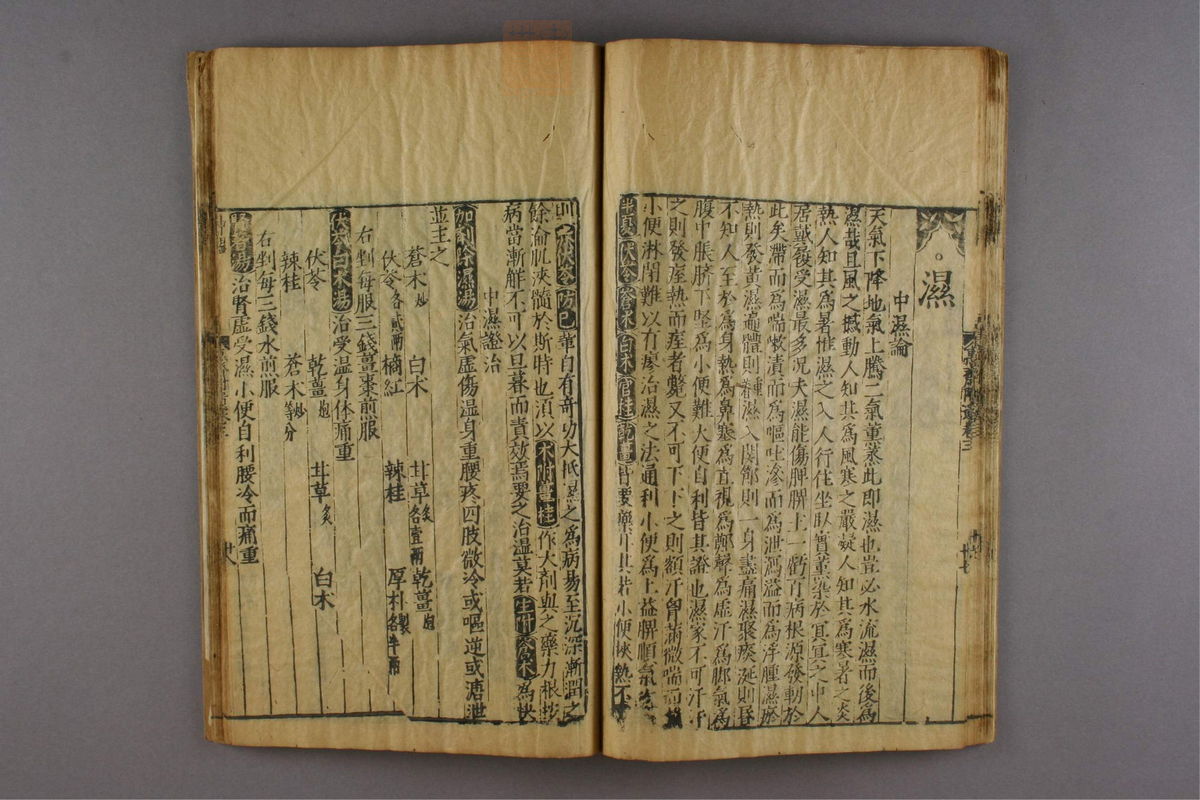 濕
中濕論
天氣下降地氣上騰二氣薰蒸此即濕也豈必水流濕而後爲
濕哉且風之撼動人知其爲風寒之嚴凝人知其爲寒暑之炎
熱人知其爲暑惟濕之入人行住坐臥實薰染於冥冥之中人
居戴履受濕最多况夫濕能傷脾脾土一虧百病根源發動於
此矣滯而爲喘嗽漬而爲嘔吐滲而爲泄瀉溢而爲浮腫濕瘀
熱則發黄濕遍體則重濕入關節則一身盡痛濕聚痰涎則昏
不知人至於爲身熱爲鼻塞爲直視爲鄭聲爲虚汗爲脚氣爲
腹中脹臍下堅爲小便難大便自利皆其證也濕家不可汗汗
之則發痓熱而痓者斃又不可下下之則額汗胷滿微喘而
小便淋閉難以有瘳治濕之法通利小便爲上益脾順氣次
半夏茯苓蒼术白术官桂乾薑皆要藥也其若小便峽熱不
則茯苓防己輩自有奇功大抵濕之爲病易至沉深漸潤之
餘淪肌浹髓於斯時也湏以术附薑桂作大剤與之藥力相
病當漸解不可以旦暮而責效焉要之治濕莫若生附蒼术爲
中濕證治
加剤除濕湯治氣虚傷温身重腰疼四肢微冷或嘔逆或溏泄
並主之
蒼木炒 白术 甘草炙各壹兩 乾薑炮
伏苓各貳兩 橘紅 辣桂 厚朴製各半兩
右剉每服三錢薑棗煎服
伏苓白术湯治受温身体痛重
伏苓 乾薑炮 甘草炙 白术
辣桂 蒼木炒等分
右剉每三錢水煎服
腎着湯治腎虚受濕小便自利腰冷而痛重